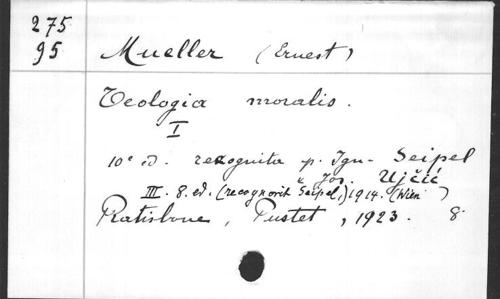 275
95
Mueller (Ernest)
Teologia moralis.
I
10ª ed. recognita p. Ign. Seipel
u Jos. Ujčić
III. 8. ed. (recognovit Seipel,) 1914. (Wien)
Ratisbone, Pustet, 1923. 8.